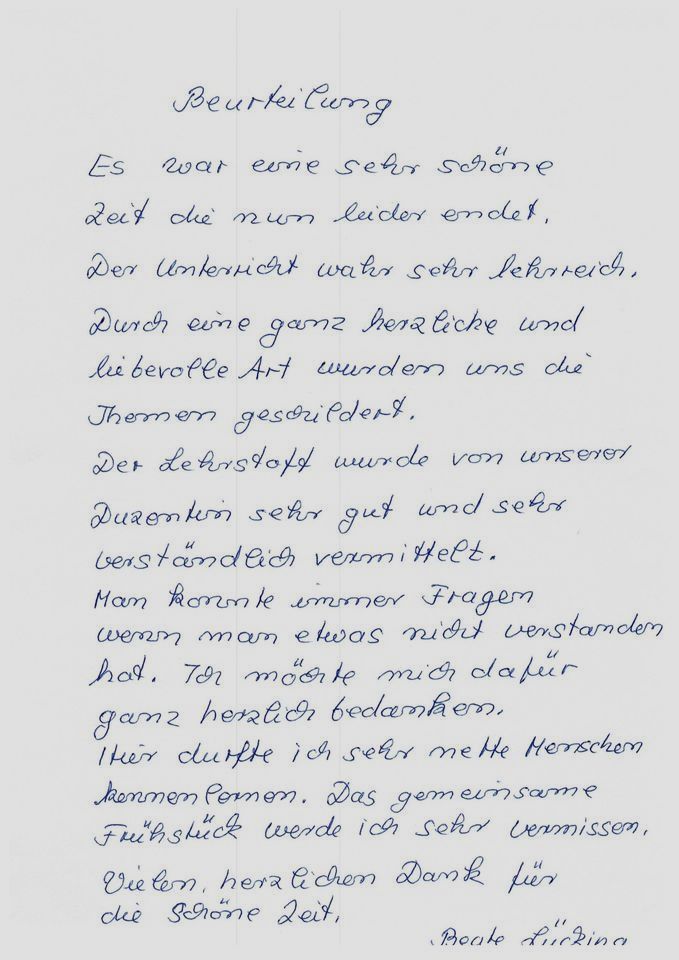 Beurteilung
Es war eine sehr schöne
Zeit die nun leider endet.
Der Unterricht wahr sehr lehrreich.
Durch eine ganz herzlicke und
liebevolle Art wurdem uns die
Themen geschildert.
Der Lehrstoff wurde von unserer
Duzentin sehr gut und sehr
verständlich vermittelt.
Man konnte immer Fragen
wenn man etwas nicht verstanden
hat. Ich möchte mich dafür
ganz herzlich bedanken.
Hier durfte ich sehr nette Menschen
kennenlernen. Das gemeinsame
Frühstück werde ich sehr vermissen.
Vielen, herzlichen Dank für
die schöne Zeit.
Beate